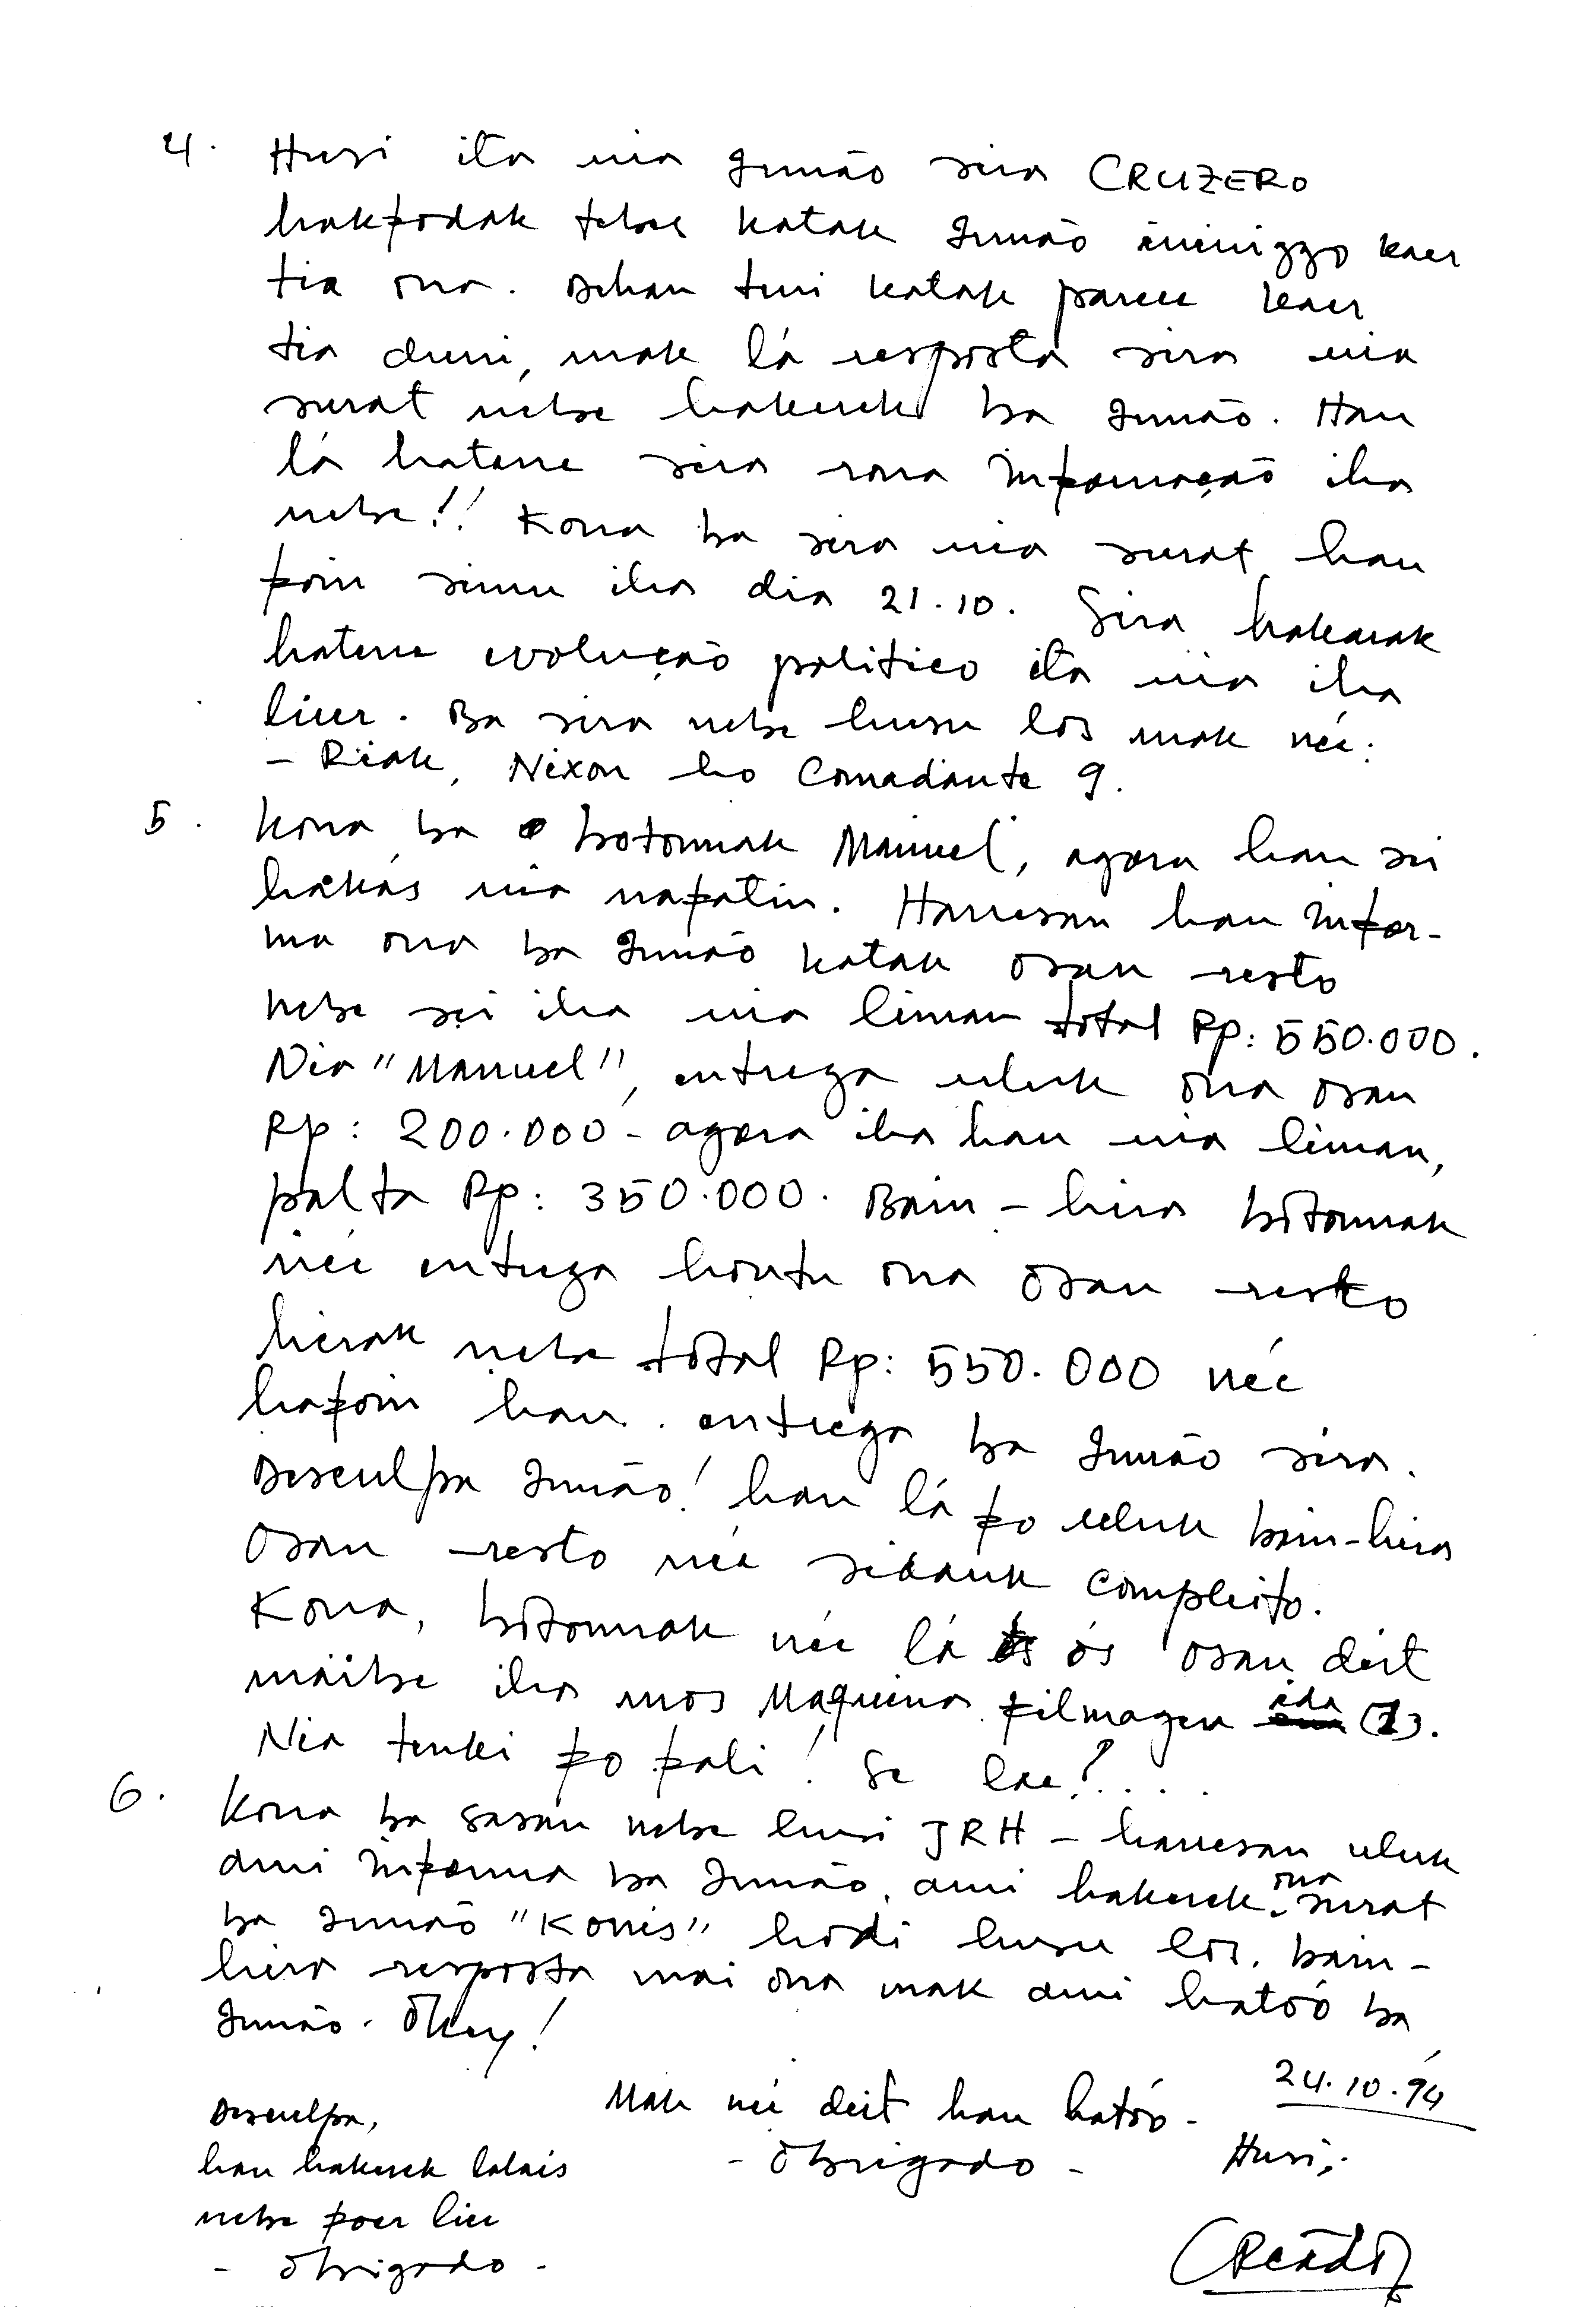 4. Husi ita nia Irmão sira CRUZERO
hakfodak tebes katak Irmão inimizzo kaer
tia ona. Dehan tuni katak parece kaer
tia duni, mak lá resposta sira nia
surat nebe hakerek ba Irmão. Hau
lá hatene sira rona informação iha
nebe!! Kona ba sira nia surat hau
foin simu iha dia 21.10. Sira hakarak
hatene evolução politico ita nia iha
liur. Ba sira nebe husu los mak neé:
- Riak, Nixon ho Comadante 9.
5. Kona ba botonnak Manuel, agora hau sei
hakás nia nafatin. Hanesan hau infor-
ma ona ba Irmão katak osan resto
nebe sei iha nia liman total Rp: 550.000.
Nia "Manuel", entrega uluk ona osan
Rp: 200.000 - agora iha hau nia liman,
falta Rp: 350.000. Bain-hira botonnak
neé entrega hontu ona osan resto
hirak nebe total Rp: 550.000 neé
hafoin hau entrega ba Irmão sira.
Desculpa Irmão! hau lá fo uluk bain-hira
osan resto neé sidauk compleito.
Kona, botonnak neé lá ós osan deit
maibe iha mos Maquina filmagen ida (1).
Nia tenki fo fali! Se lae?....
6. Kona ba sasan nebe husi JRH - hanesan uluk
ami informa ba Irmão, ami hakerek ona surat
ba Irmão "Konis" hodi husu los. bain-
hira resposta mai ona mak ami hatoó ba
Irmão. Okey!
Mak neé deit hau hatóo -
- Obrigado -
24.10.94
Husi,
(Reñdo)
Desculpa,
hau hakerek lalais
nebe foer liu
- Obrigado -